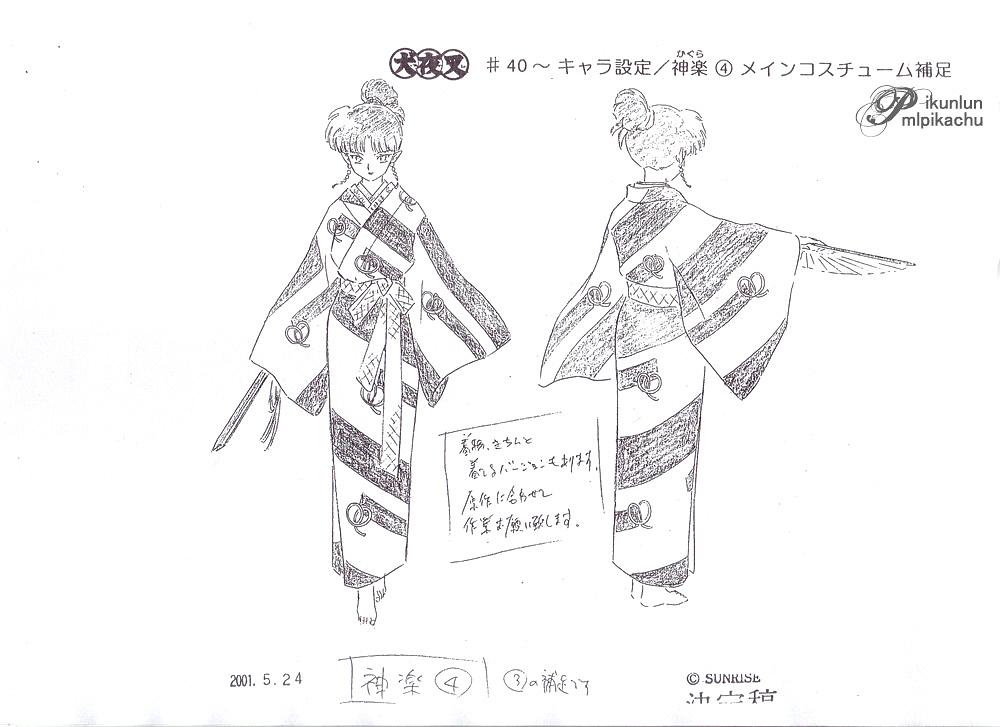 犬夜叉 #40～ キャラ設定／神楽 ④ メインコスチューム補足
ひぐら
Pikunlun
Pmlpikachu
着物、きちんと
着てるバージョンもあります。
原作に合わせて
作業お願い致します。
2001.5.24
神楽 ④
③の補足です
© SUNRISE
決定稿